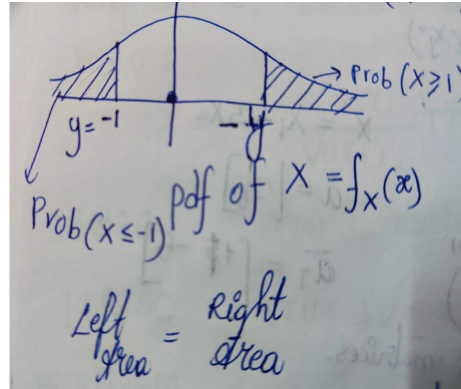 → Prob (X ≥ 1)
y = -1
Prob (X ≤ -1)
pdf of X = f_X(x)
Left Area = Right Area